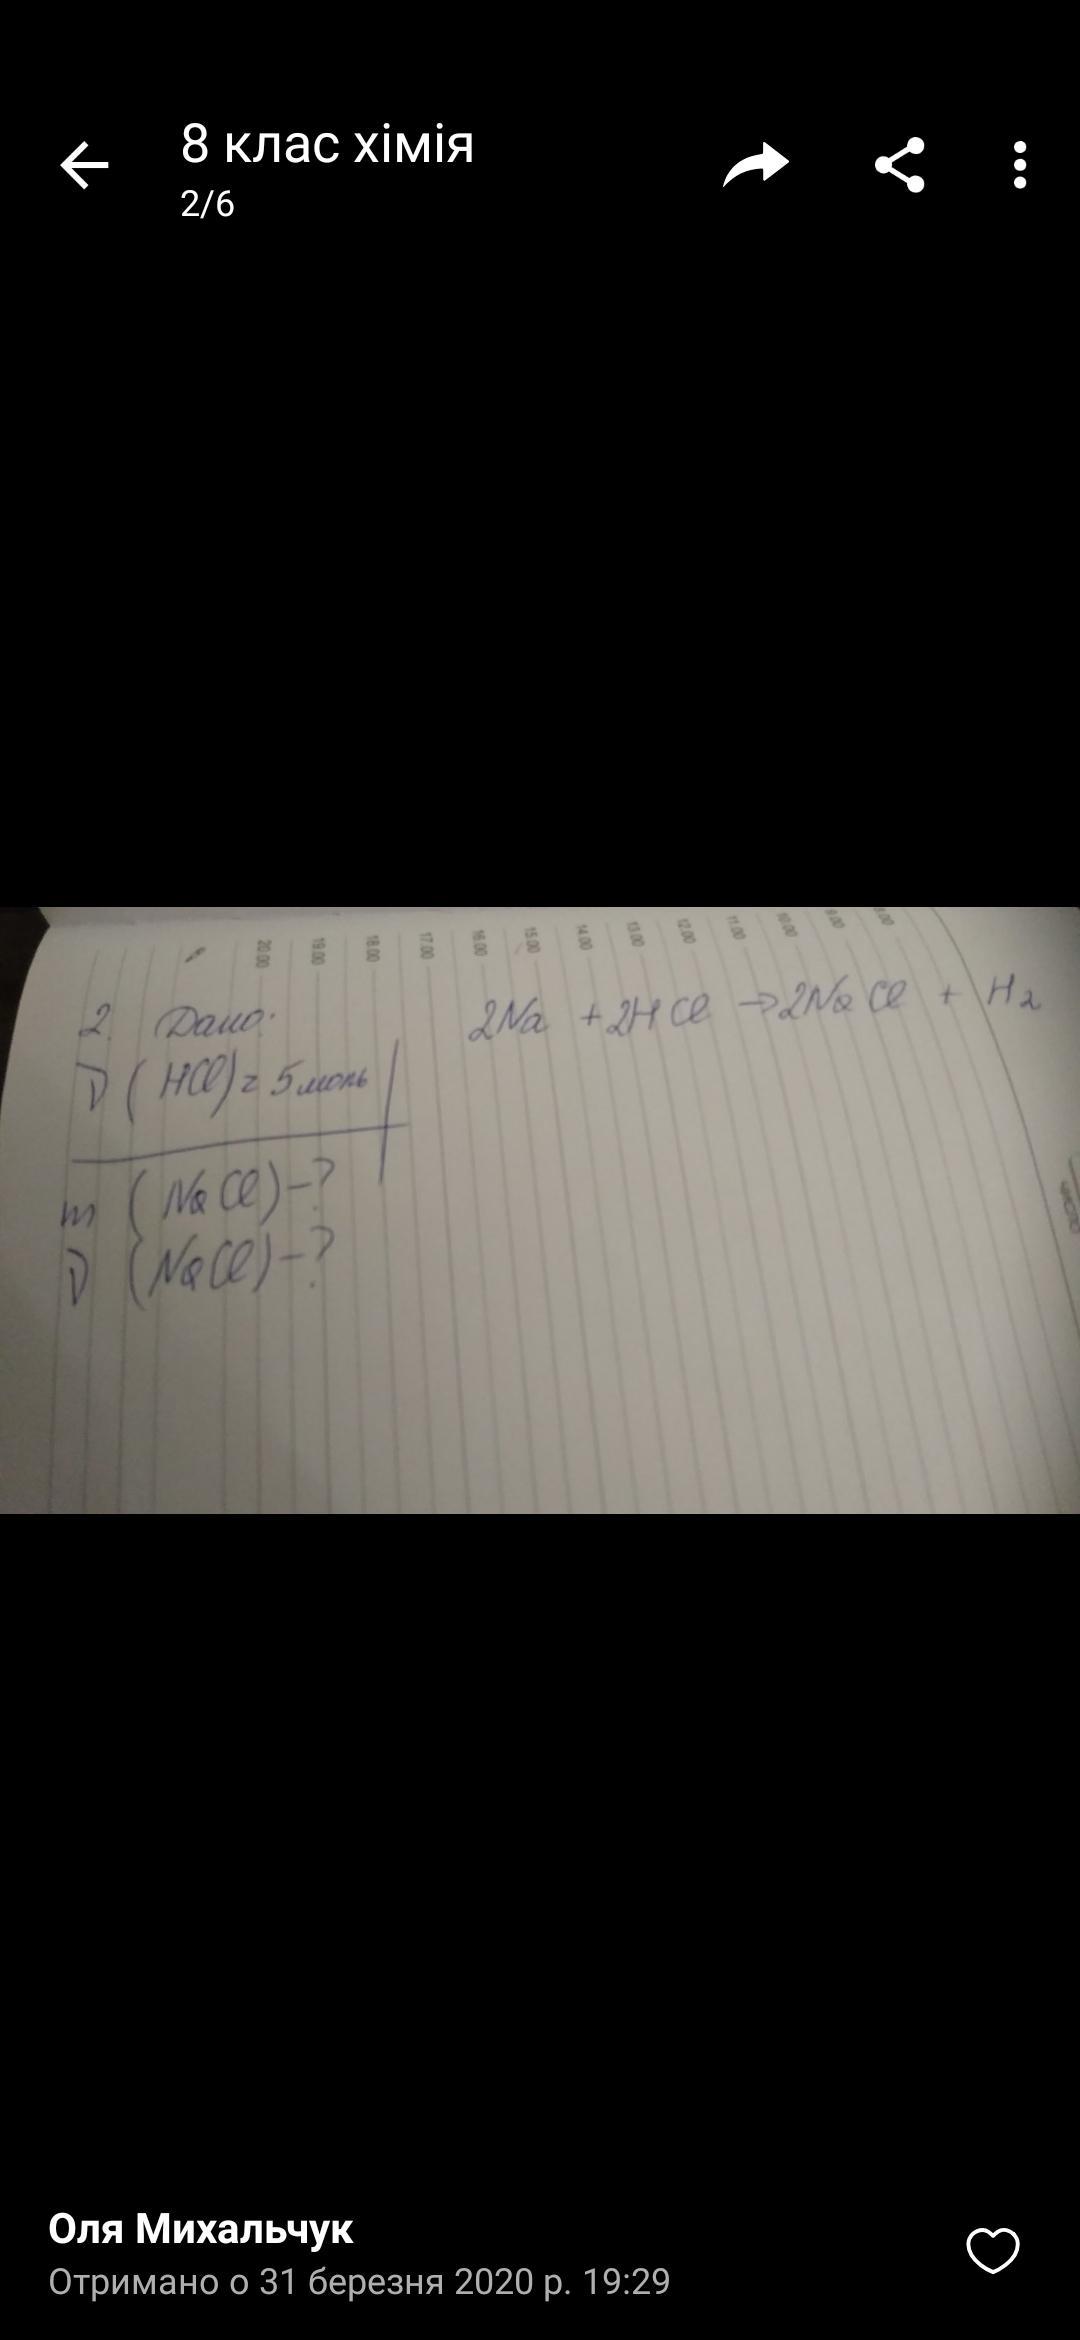 8 клас хімія
2/6
20.00 19.00 18.00 17.00 16.00 15.00 14.00 13.00 12.00 11.00 10.00 9.00 8.00
2. Дано: 2Na + 2HCl → 2NaCl + H2
ν (HCl) = 5 моль
m (NaCl) - ?
ν (NaCl) - ?
число
Оля Михальчук
Отримано о 31 березня 2020 р. 19:29